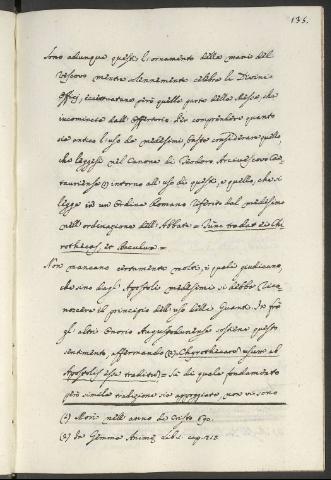 135.
Sono adunque questi l'ornamento delle mani del
Vescovo mentre solennemente celebra li Divini
Offizj, eccettuatane però quella parte della Messa, che
incomincia dall'Offertorio. Per comprendere quanto
sia antico l'uso de' medesimi basta considerare quello,
che leggesi nel Canone di Teodoro Arcivescovo Can-
tuariense (1) intorno all'uso di questi, e quello, che si
legge in un Ordine Romano riferito dal medesimo
nell'ordinazione dell'Abbate = Tunc tradat ei Chi-
rothecas, et baculum =
Non mancano certamente molti, i quali giudicano,
che sino dagl'Apostoli medesimi si debba rico-
noscere il principio dell'uso delli Guanti. Da frà
gl'altri Onorio Augustodunense sostiene questo
sentimento, affermando (2) Chyrothecarum usum ab
Apostolis esse traditum = Sù di quale fondamento
però simile tradizione sia appoggiata, non vi sono
(1) Morì nell'anno di Cristo 690.
(2) In Gemma Animæ Lib. 1. cap. 215.